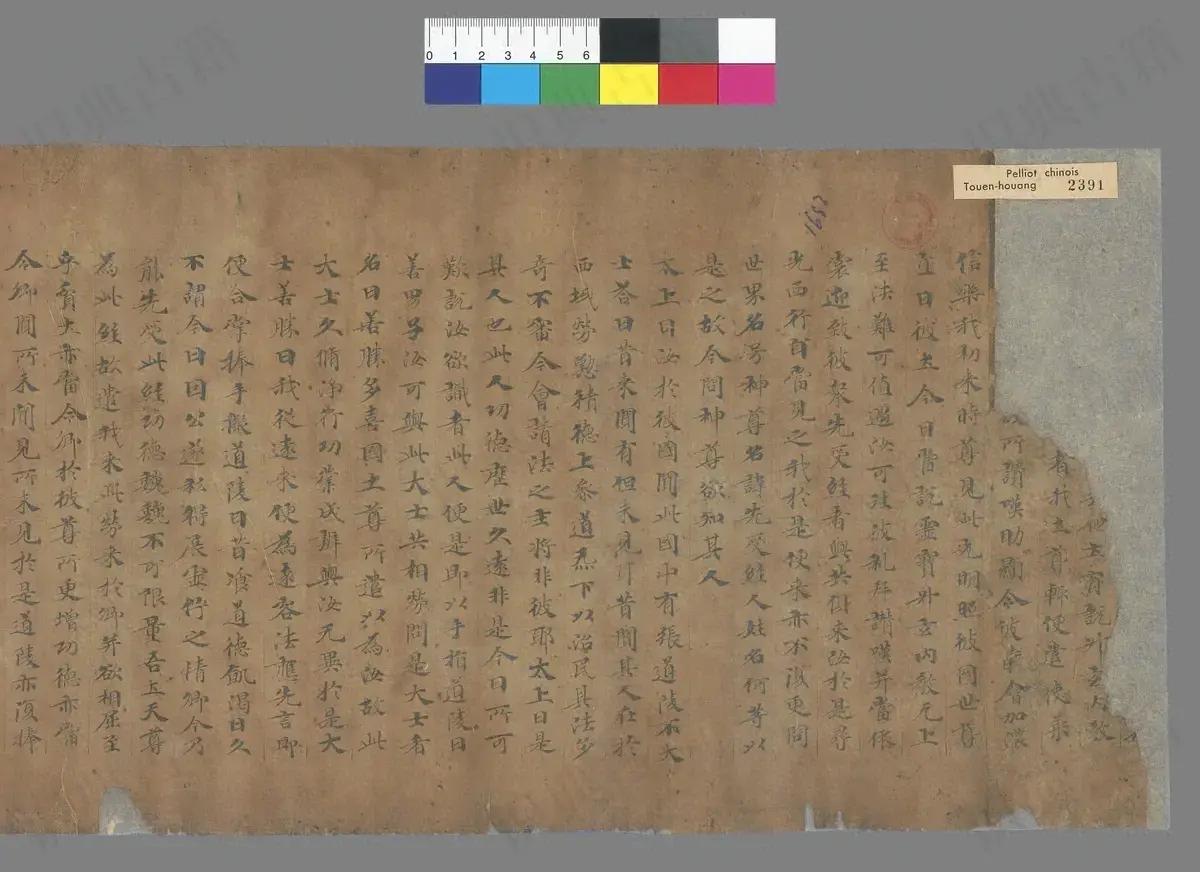 Pelliot chinois
Touen-houang 2391
1652
0 1 2 3 4 5 6
土寶說外玄內教
者我世尊輒便遣使乘
所讚嘆助顯令彼衆會加潤
信樂我初來時尊見此光明照彼國世尊
告曰彼土今日階說靈寶外玄內教无上
至法難可值遇汝可往彼礼拜讚嘆并當依
蒙迹致彼衆先受經者與共俱來汝於是尋
光西行自當見之我於是使來亦不復更問
世界名号神尊名諱先受經人姓名何等以
是之故今問神尊欲知其人
太上曰汝於彼國聞此國中有張道陵不大
士荅曰昔來聞有但未見耳昔聞其人在於
西域勞懃精德上參道炁下以治民其法多
奇不審今會請法之主將非彼耶太上曰是
其人也此人功德歷世久遠非是今日所可
歎說汝欲識者此人便是即以手指道陵曰
善男子汝可與此大士共相勞問是大士者
名曰善勝多喜國土尊所遣以為汝故此
大士久脩淨行功業成辦與汝无異於是大
士善勝曰我從遠來便為遠客法應先言即
便合掌捧手擬道陵曰昔飡道德飢渴日久
不謂今日因公遂我得展虛佇之情卿今乃
能先受此經功德巍巍不可限量吾上天尊
為此經故遣我來此勞來於卿并欲相屈至
乎賣土亦當令卿於彼尊所更增功德亦當
令卿聞所未聞見所未見於是道陵亦復捧